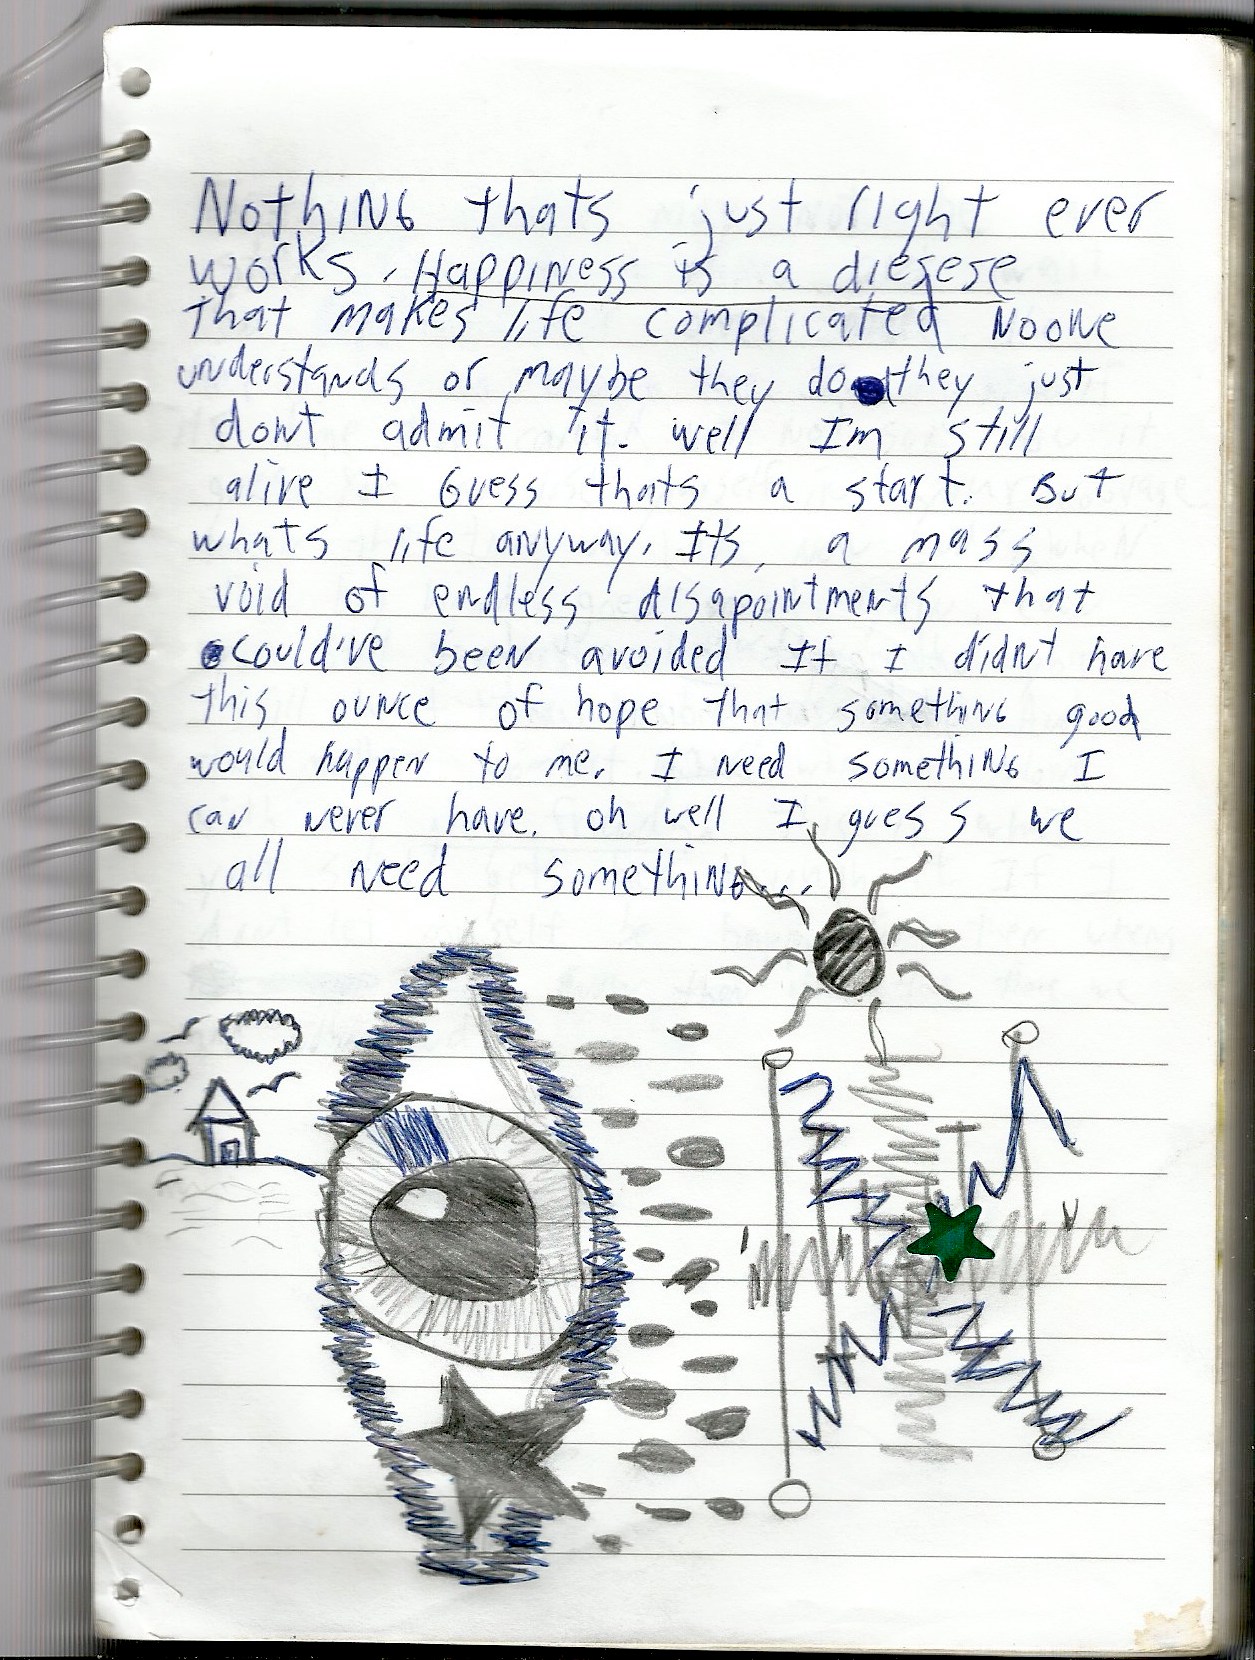 Nothing thats just right ever
works. Happiness is a diesese
that makes life complicated Noone
understands or maybe they do they just
dont admit it. well Im still
alive I Guess thats a start. But
whats life anyway. Its a mass
void of endless disapointments that
could've been avoided If I didn't have
this ounce of hope that something good
would happen to me. I need something I
can never have. oh well I guess we
all need something...